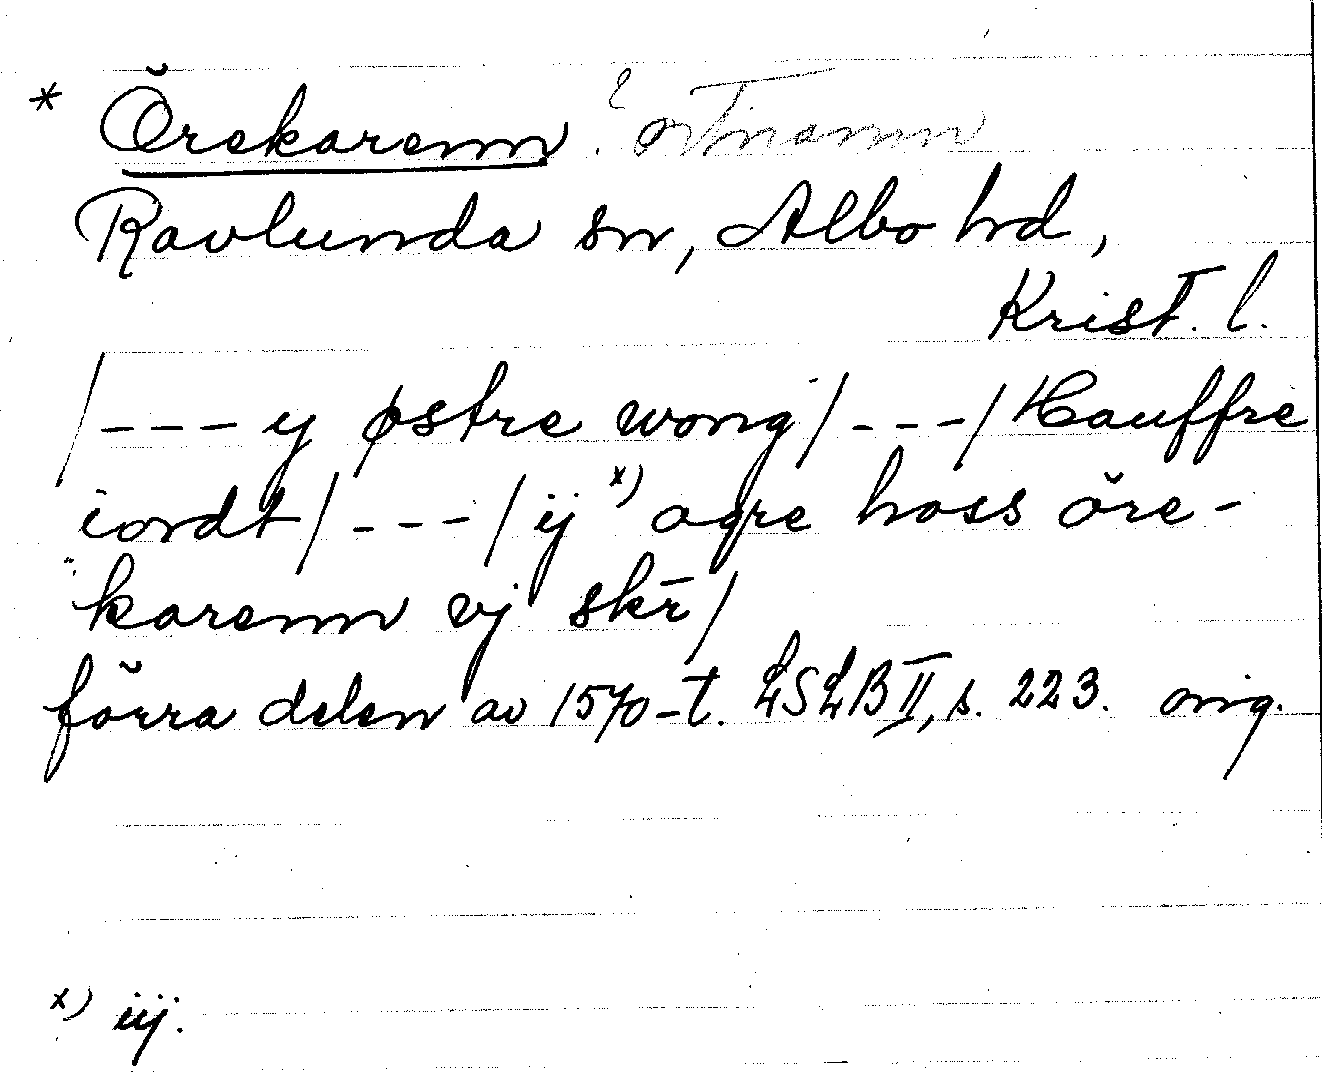 * Örekarenn. ? ortnamn
Ravlunda sn, Albo hd,
Krist. l.
/--- y østre wong/---/Hauffre
iordt/---/ij x) agre hoss öre-
karenn vj skr̄/
förra delen av 1570-t. LSLB II, s. 223. orig.
x) iij.